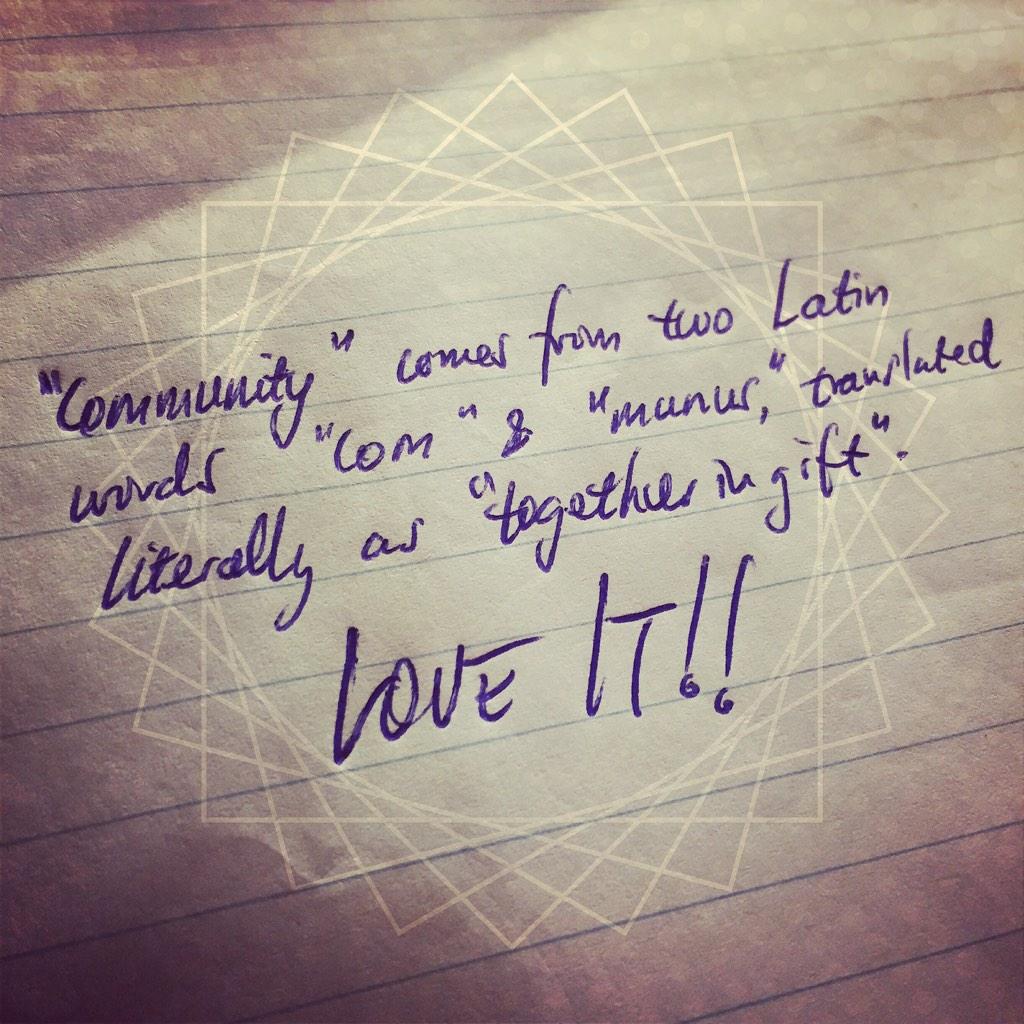 "Community" comes from two Latin
words "com" & "munus," translated
literally as "together in gift".
LOVE IT!!